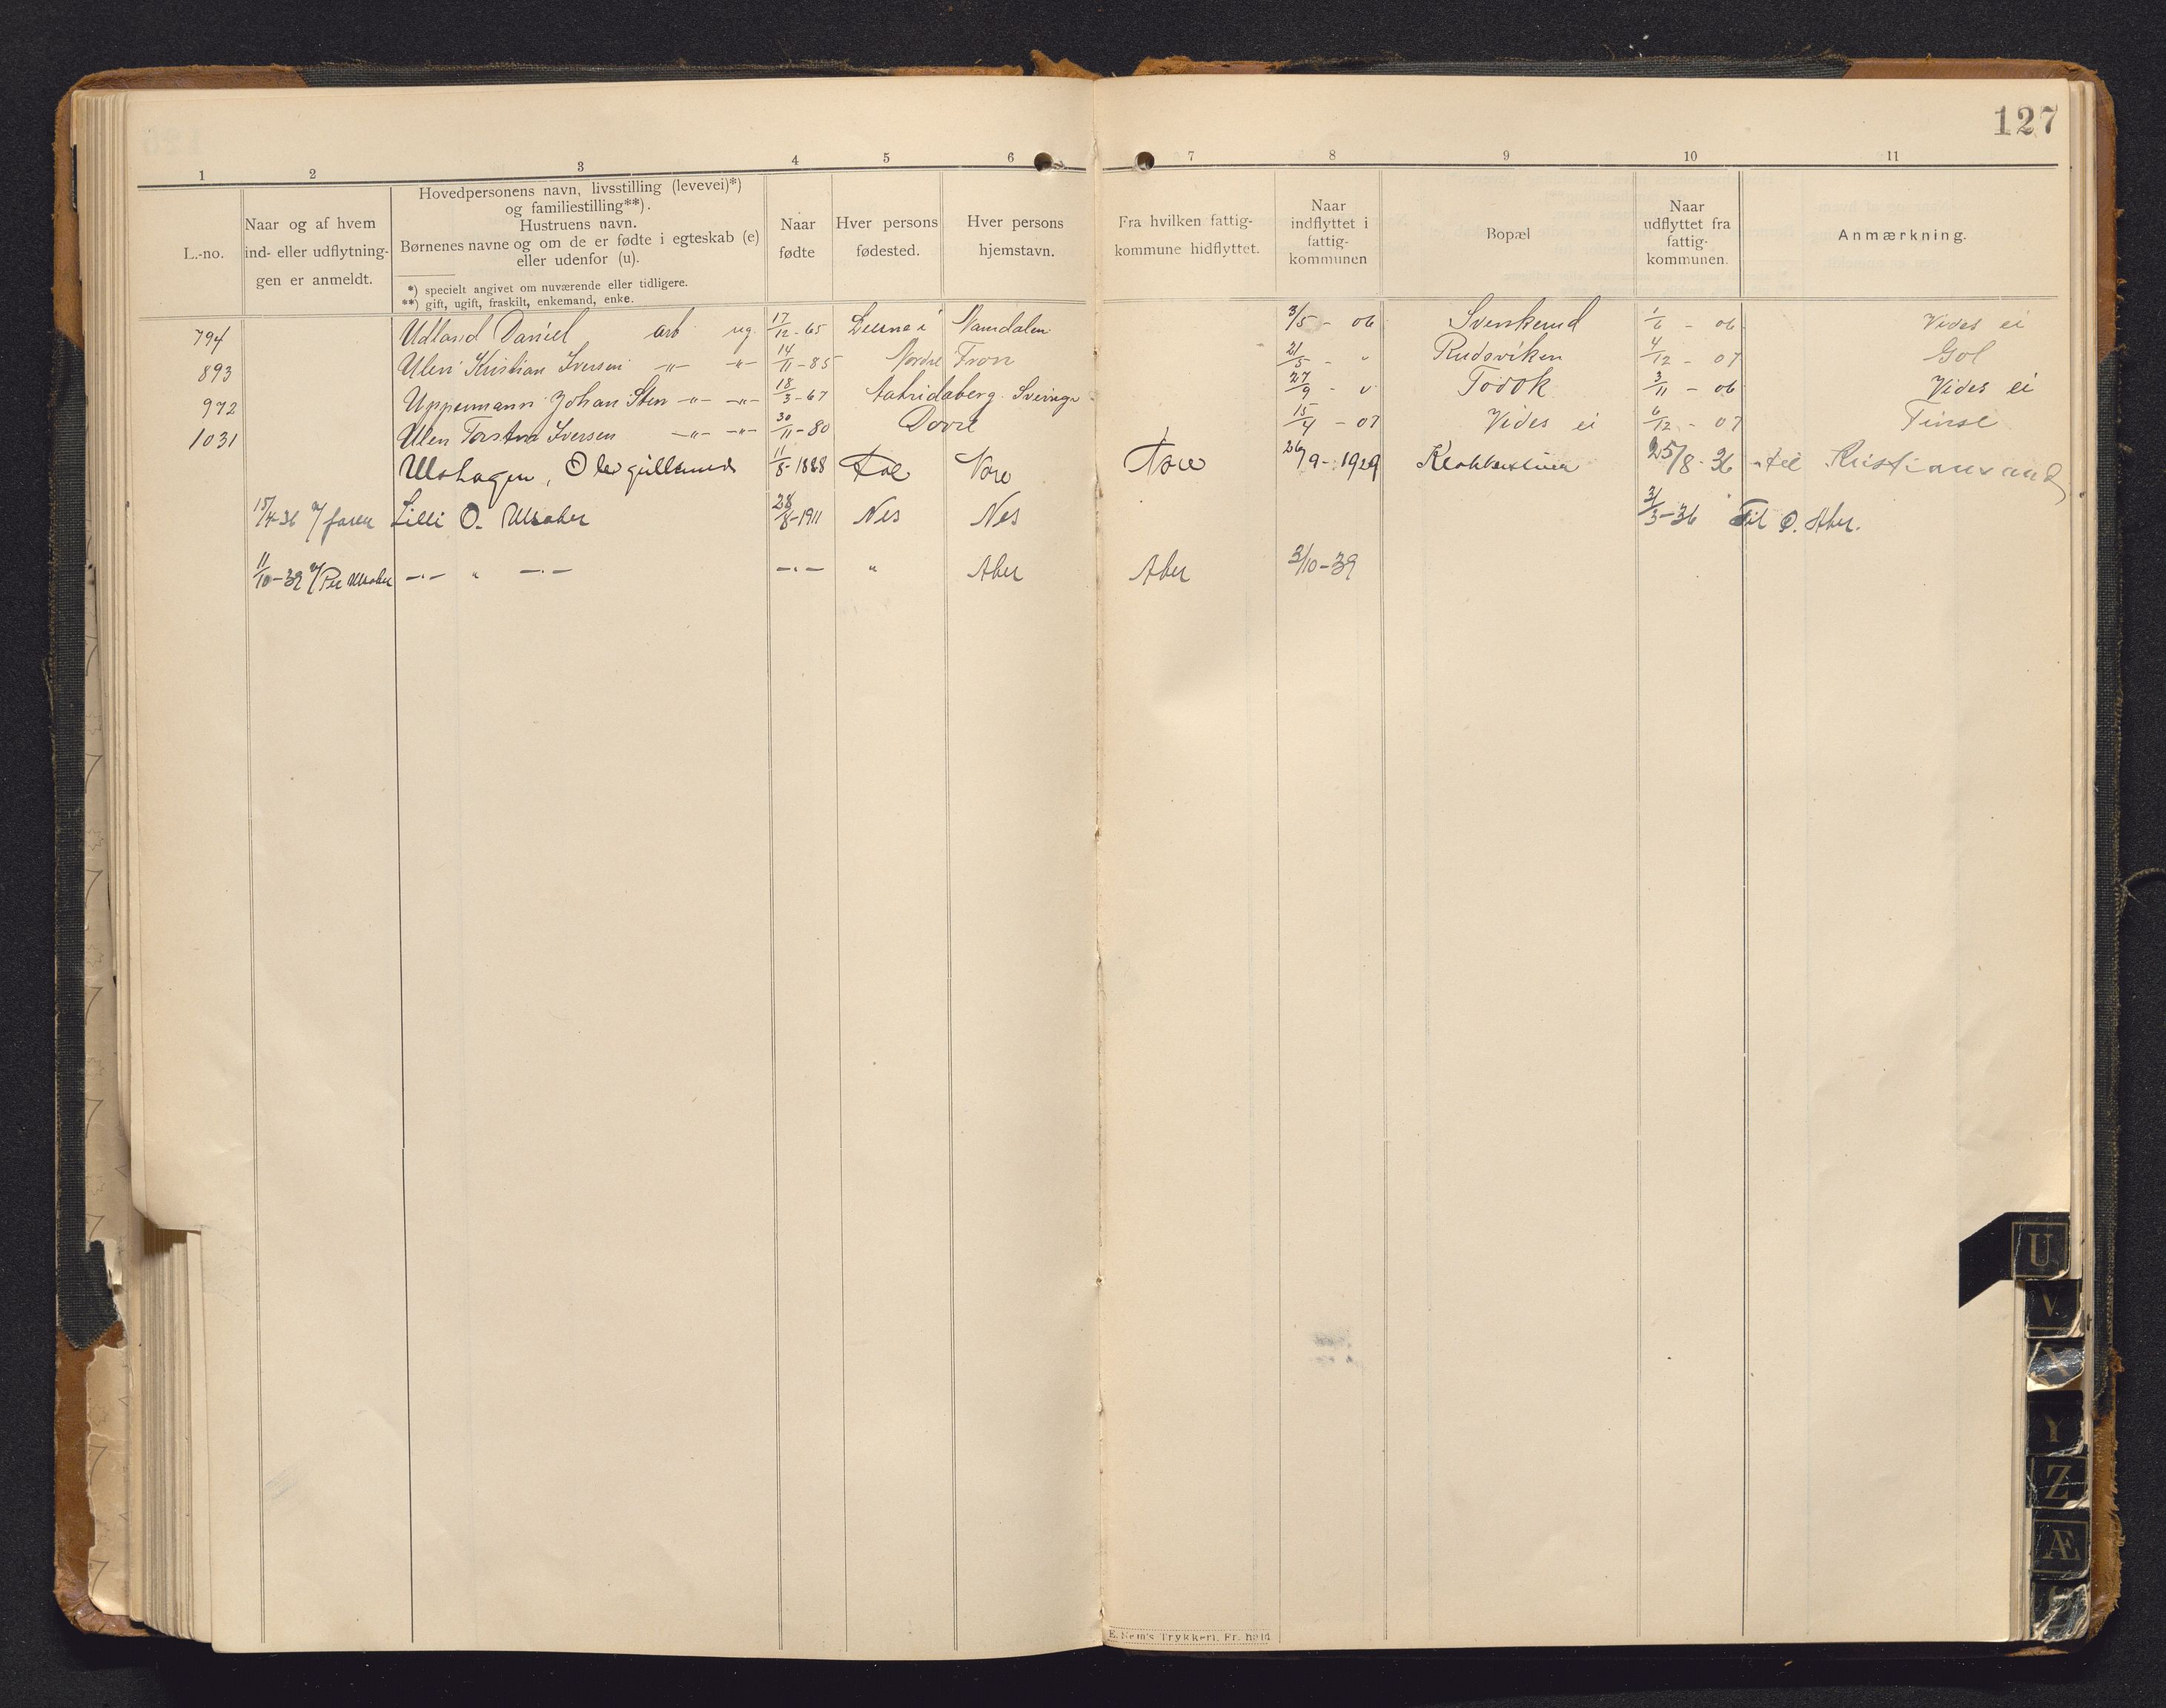 127
1 2 3 4 5 6 7 8 9 10 11
L.-no.
Naar og af hvem
ind- eller udflytnin-
gen er anmeldt.
Hovedpersonens navn, livsstilling (levevei)*)
og familiestilling**).
Hustruens navn.
Børnenes navne og om de er fødte i egteskab (e)
eller udenfor (u).
*) specielt angivet om nuværende eller tidligere.
**) gift, ugift, fraskilt, enkemand, enke.
Naar
fødte
Hver persons
fødested.
Hver persons
hjemstavn.
Fra hvilken fattig-
kommune hidflyttet.
Naar
indflyttet i
fattig-
kommunen
Bopæl
Naar
udflyttet fra
fattig-
kommunen.
Anmærkning.
794 Udland Daniel arb ug. 17/12-65 Namdalen 3/5 - 06 Svenkerud 1/6 - 06 Vides ei
893 Ulen Kristian Iversen -"- -"- 14/11-85 Nordre Fron 21/5 - " Rudsviken 4/12 - 07 Gol
972 Uppermann Johan Sten -"- -"- 18/3-67 Sverige 27/9 - " Torok 3/11 - 06 Vides ei
1031 Ulen Torsten Iversen -"- -"- 30/11-80 Dovre 15/4 - 07 Vides ei 6/12 - 07 Finse
Ulshagen, Olav 11/8-1888 Nore Nore 26/9-1929 25/8-36 til Kristiansand
15/4-36 v/ faren Lilli O. Ulsaker 28/8-1911 Nes Nes 3/3-36 Til Ø. Aker.
11/10-39 v/ Per Ulsaker -"- " -"- -"- " Aker Aker 2/10-39
E. Sem's Trykkeri, Fr.hald
U
V
X
Y
Z
Æ